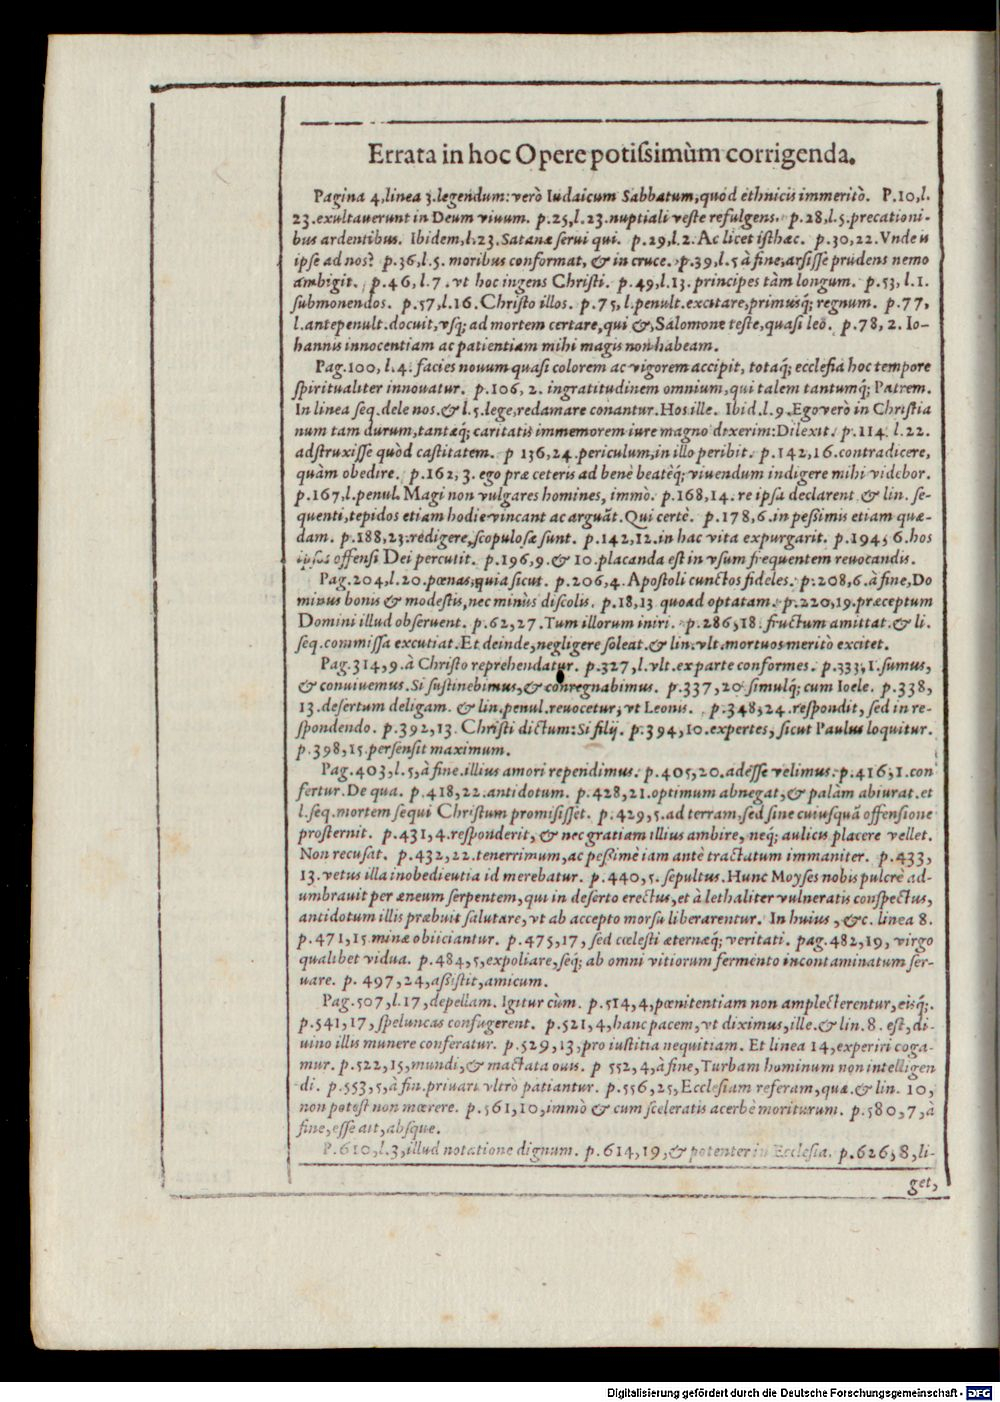 Errata in hoc Opere potissimùm corrigenda.
Pagina 4, linea 3. legendum: verò Iudaicum Sabbatum, quod ethnicis immeritò. P. 10, l.
23. exultauerunt in Deum viuum. p. 25, l. 23. nuptiali veste refulgens. p. 28, l. 5. precationi-
bus ardentibus. Ibidem, l. 23. Satanæ serui qui. p. 29, l. 2. Ac licet isthæc. p. 30, 22. Vnde is
ipse ad nos? p. 36, l. 5. moribus conformat, & in cruce. p. 39, l. 5 à fine, arsisse prudens nemo
ambigit. p. 46, l. 7. vt hoc ingens Christi. p. 49, l. 13. principes tàm longum. p. 53, l. 1.
submonendos. p. 57, l. 16. Christo illos. p. 75, l. penult. excitare, primusq́; regnum. p. 77,
l. antepenult. docuit, vsq́; ad mortem certare, qui &, Salomone teste, quasi leo. p. 78, 2. Io-
hannis innocentiam ac patientiam mihi magis non habeam.
Pag. 100, l. 4. facies nouum quasi colorem ac vigorem accipit, totaq́; ecclesia hoc tempore
spiritualiter innouatur. p. 106, 2. ingratitudinem omnium, qui talem tantumq́; Patrem.
In linea seq. dele nos. & l. 5. lege, redamare conantur. Hos ille. Ibid. l. 9. Ego verò in Christia
num tam durum, tantæq́; caritatis immemorem iure magno dixerim: Dilexit. p. 114. l. 22.
adstruxisse quòd castitatem. p 136, 24. periculum, in illo peribit. p. 142, 16. contradicere,
quàm obedire. p. 162, 3. ego præ ceteris ad benè beatèq́; viuendum indigere mihi videbor.
p. 167, l. penul. Magi non vulgares homines, immò. p. 168, 14. re ipsa declarent & lin. se-
quenti, tepidos etiam hodie vincant ac arguãt. Qui certè. p. 178, 6. in pessimis etiam quæ-
dam. p. 188, 23. redigere, scopulosæ sunt. p. 142, 12. in hac vita expurgarit. p. 194, 6. hos
ipsos offensi Dei percutit. p. 196, 9. & 10. placanda est in vsum frequentem reuocandis.
Pag. 204, l. 20. pœnas, quia sicut. p. 206, 4. Apostoli cunctos fideles. p. 208, 6. à fine, Do
minus bonis & modestis, nec minùs discolis. p. 18, 13 quoad optatam. p. 220, 19. præceptum
Domini illud obseruent. p. 62, 27. Tum illorum iniri. p. 286, 18. fructum amittat. & li.
seq. commissa excutiat. Et deinde, negligere soleat. & lin. vlt. mortuos meritò excitet.
Pag. 314, 9. à Christo reprehendatur. p. 327, l. vlt. ex parte conformes. p. 333, 1. sumus,
& conuiuemus. Si sustinebimus, & conregnabimus. p. 337, 20 simulq́; cum Ioele. p. 338,
13. desertum deligam. & lin. penul. reuocetur, vt Leonis. p. 348, 24. respondit, sed in re-
spondendo. p. 392, 13. Christi dictum: Si filij. p. 394, 10. expertes, sicut Paulus loquitur.
p. 398, 15. persensit maximum.
Pag. 403, l. 5, à fine. illius amori rependimus. p. 405, 20. adesse velimus. p. 416, 1. con
fertur. De qua. p. 418, 22. antidotum. p. 428, 21. optimum abnegat, & palàm abiurat. et
l. seq. mortem sequi Christum promisisset. p. 429, 5. ad terram, sed sine cuiusquã offensione
prosternit. p. 431, 4. responderit, & nec gratiam illius ambire, neq́; aulicis placere vellet.
Non recusat. p. 432, 22. tenerrimum, ac pessimè iam antè tractatum immaniter. p. 433,
13. vetus illa inobedieutia id merebatur. p. 440, 5. sepultus. Hunc Moyses nobis pulcrè ad-
umbrauit per æneum serpentem, qui in deserto erectus, et à lethaliter vulneratis conspectus,
antidotum illis præbuit salutare, vt ab accepto morsu liberarentur. In huius, &c. linea 8.
p. 471, 15. minæ obiiciantur. p. 475, 17, sed cœlesti æternæq́; veritati. pag. 482, 19, virgo
qualibet vidua. p. 484, 5, expoliare, seq́; ab omni vitiorum fermento incontaminatum ser-
uare. p. 497, 24, assistit, amicum.
Pag. 507, l. 17, depellam. Igitur cùm. p. 514, 4, pœnitentiam non amplecterentur, eisq́;.
p. 541, 17, speluncas confugerent. p. 521, 4, hanc pacem, vt diximus, ille. & lin. 8. est, di-
uino illis munere conferatur. p. 529, 13, pro iustitia nequitiam. Et linea 14, experiri coga-
mur. p. 522, 15, mundi, & mactata ouis. p 552, 4, à fine, Turbam hominum non intelligen
di. p. 553, 5, à fin. priuari vltrò patiantur. p. 556, 25, Ecclesiam referam, quæ. & lin. 10,
non potest non mœrere. p. 561, 10, immò & cum sceleratis acerbè moriturum. p. 580, 7, à
fine, esse ait, absque.
P. 610, l. 3, illud notatione dignum. p. 614, 19, & potenter in Ecclesia. p. 626, 8, li-
get,
Digitalisierung gefördert durch die Deutsche Forschungsgemeinschaft - DFG